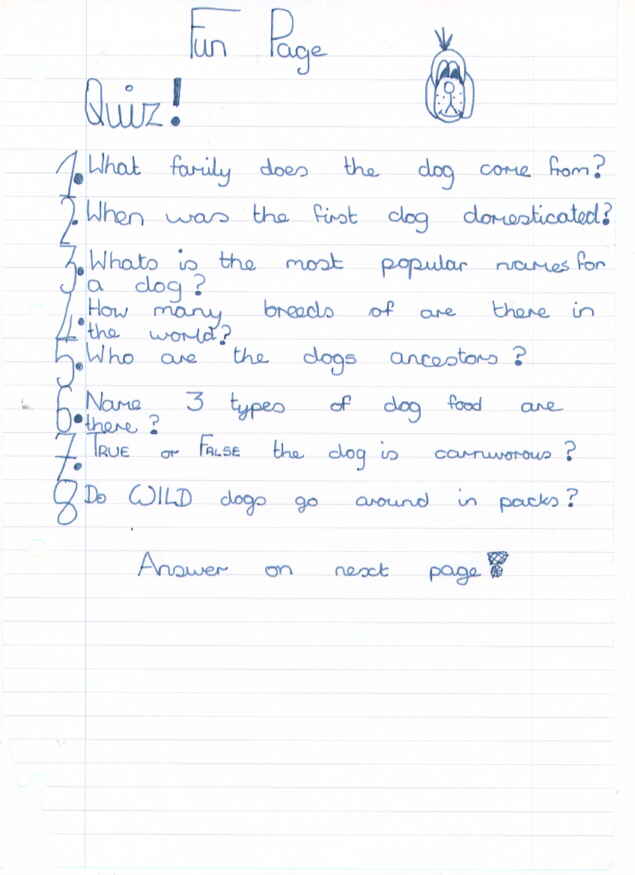 Fun Page
Quiz!
1. What family does the dog come from?
2. When was the first dog domesticated?
3. Whats is the most popular names for
a dog?
4. How many breeds of are there in
the world?
5. Who are the dogs ancestors?
6. Name 3 types of dog food are
there?
7. TRUE or FALSE the dog is carnivorous?
8 Do WILD dogs go around in packs?
Answer on next page!